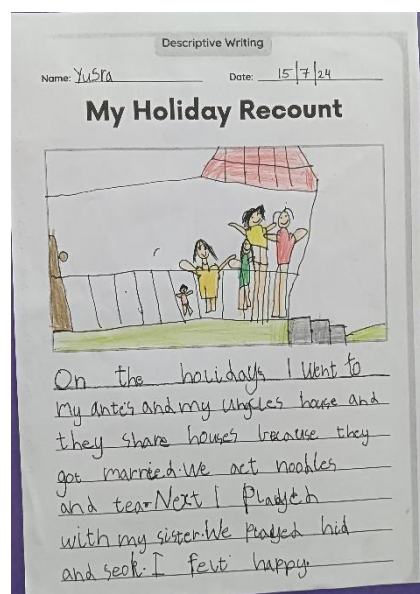 Descriptive Writing
Name: Yusra Date: 15/7/24
My Holiday Recount
On the holidays I went to
my ante's and my ungles house and
they share houses because they
got marreied. We act noobles
and tea. Next I Played
with my sister. We played hid
and seok. I felt happy.